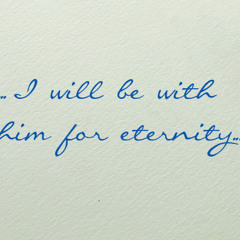 ..I will be with
him for eternity..